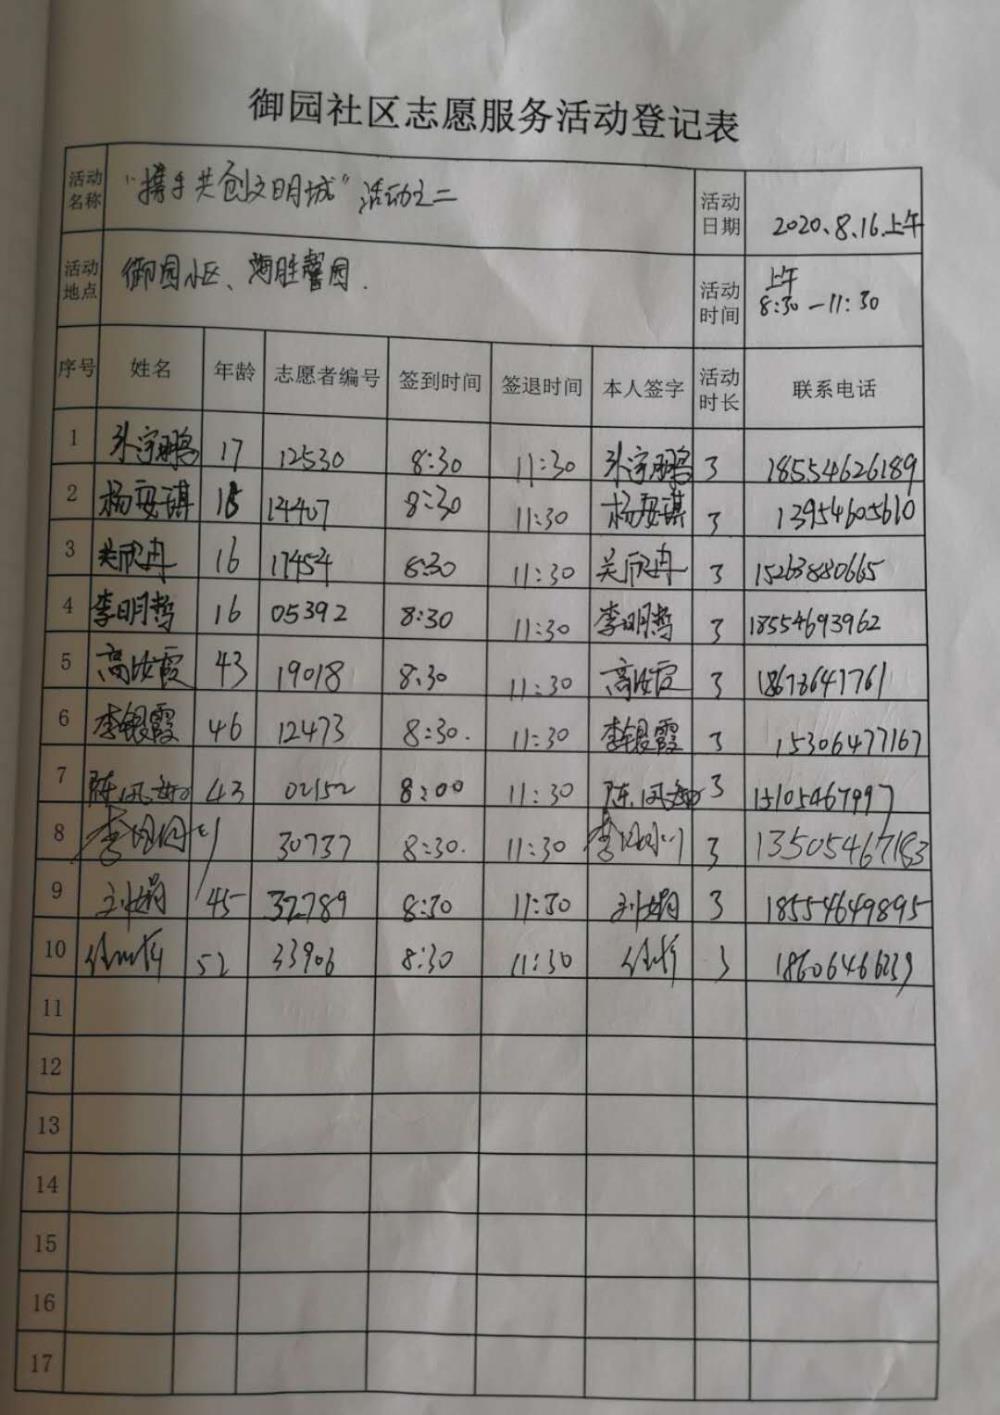 御园社区志愿服务活动登记表
活动名称 "携手共创文明城"活动之二 活动日期 2020.8.16.上午
活动地点 御园小区、海胜馨园. 活动时间 上午 8:30-11:30
序号 姓名 年龄 志愿者编号 签到时间 签退时间 本人签字 活动时长 联系电话
1 孙宇鹏 17 12530 8:30 11:30 孙宇鹏 3 18554626189
2 杨安琪 14407 8:30 11:30 杨安琪 3
3 吴欣冉 16 17454 8:30 11:30 吴欣冉 3 15263880665
4 李明哲 16 05392 8:30 11:30 李明哲 3 18554693962
5 高汝霞 43 19018 8:30 11:30 高汝霞 3 18678647761
6 李银霞 46 12473 8:30. 11:30 李银霞 3 15306477167
7 陈凤 43 02152 8:00 11:30 陈凤 3 15105467997
8 李 30737 8:30. 11:30 李 3 13505467183
9 刘娟 45 32789 8:30 11:30 刘娟 3 18554649895
10 52 33906 8:30 11:30 3
11
12
13
14
15
16
17